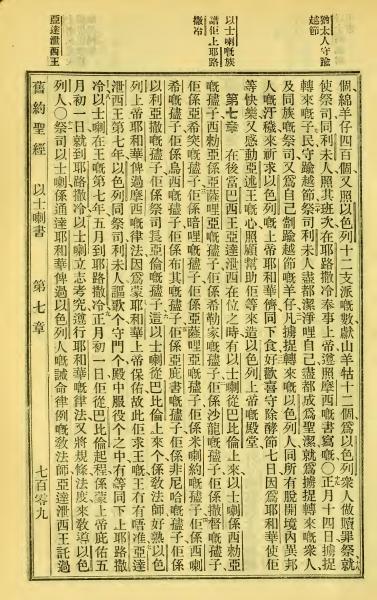 猶太人守踰
越節
以士喇嘅族
譜佢上耶路
撒冷
亞達泄西王
個綿羊仔四百個又照以色列十二支派嘅數獻山羊牯十二個爲以色列衆人做贖罪祭就
使祭司同利未人照其班次在耶路撒冷奉事上帝遵照摩西嘅書寫嘅○正月十四日擄捉
轉來嘅子民守踰越節祭司利未人盡都潔淨哩自己盡都成爲聖潔就爲擄捉轉來嘅衆人
及同族嘅祭司又爲自己劏踰越節嘅羊仔凡擄捉轉來嘅以色列人同所有脫開境內異邦
人嘅汙穢來祈求以色列嘅上帝耶和華儕同下食好歡喜守除酵節七日因爲耶和華使佢
等快樂又感動亞述王嘅心照顧幫助佢等來造以色列上帝嘅殿堂
第七章 在後當巴西王亞達泄西在位之時有以士喇從巴比倫上來以士喇係西勅亞
嘅孻子西勅亞係亞薩哩亞嘅孻子佢係希勒家嘅孻子佢係沙龍嘅孻子佢係撒督嘅孻子
佢係亞希突嘅孻子佢係暗哩嘅孻子佢係亞薩哩亞嘅孻子佢係米喇約嘅孻子佢係西喇
希嘅孻子佢係烏西嘅孻子佢係布其嘅孻子佢係亞庇書嘅孻子佢係非尼哈嘅孻子佢係
以利亞撒嘅孻子佢係祭司長亞倫嘅孻子這以士喇從巴比倫上來个係敎法師好熟以色
列上帝耶和華俾過摩西嘅律法因爲蒙耶和華上帝保佑故此佢求王嘅王有有唔准亞達
泄西王第七年以色列同祭司利未人謳歌个守門个殿中服役个之中有等同下上耶路撒
冷以士喇在王嘅第七年五月到耶路撒冷正月初一日佢從巴比倫起程係蒙上帝庇佑五
月初一日就到耶路撒冷以士喇立志考究遵行耶和華嘅律法又將規條法度來敎導以色
列人○祭司以士喇係通達耶和華俾過以色列人嘅誡命律例嘅敎法師亞達泄西王託過
舊約聖經 以士喇書 第七章 七百零九